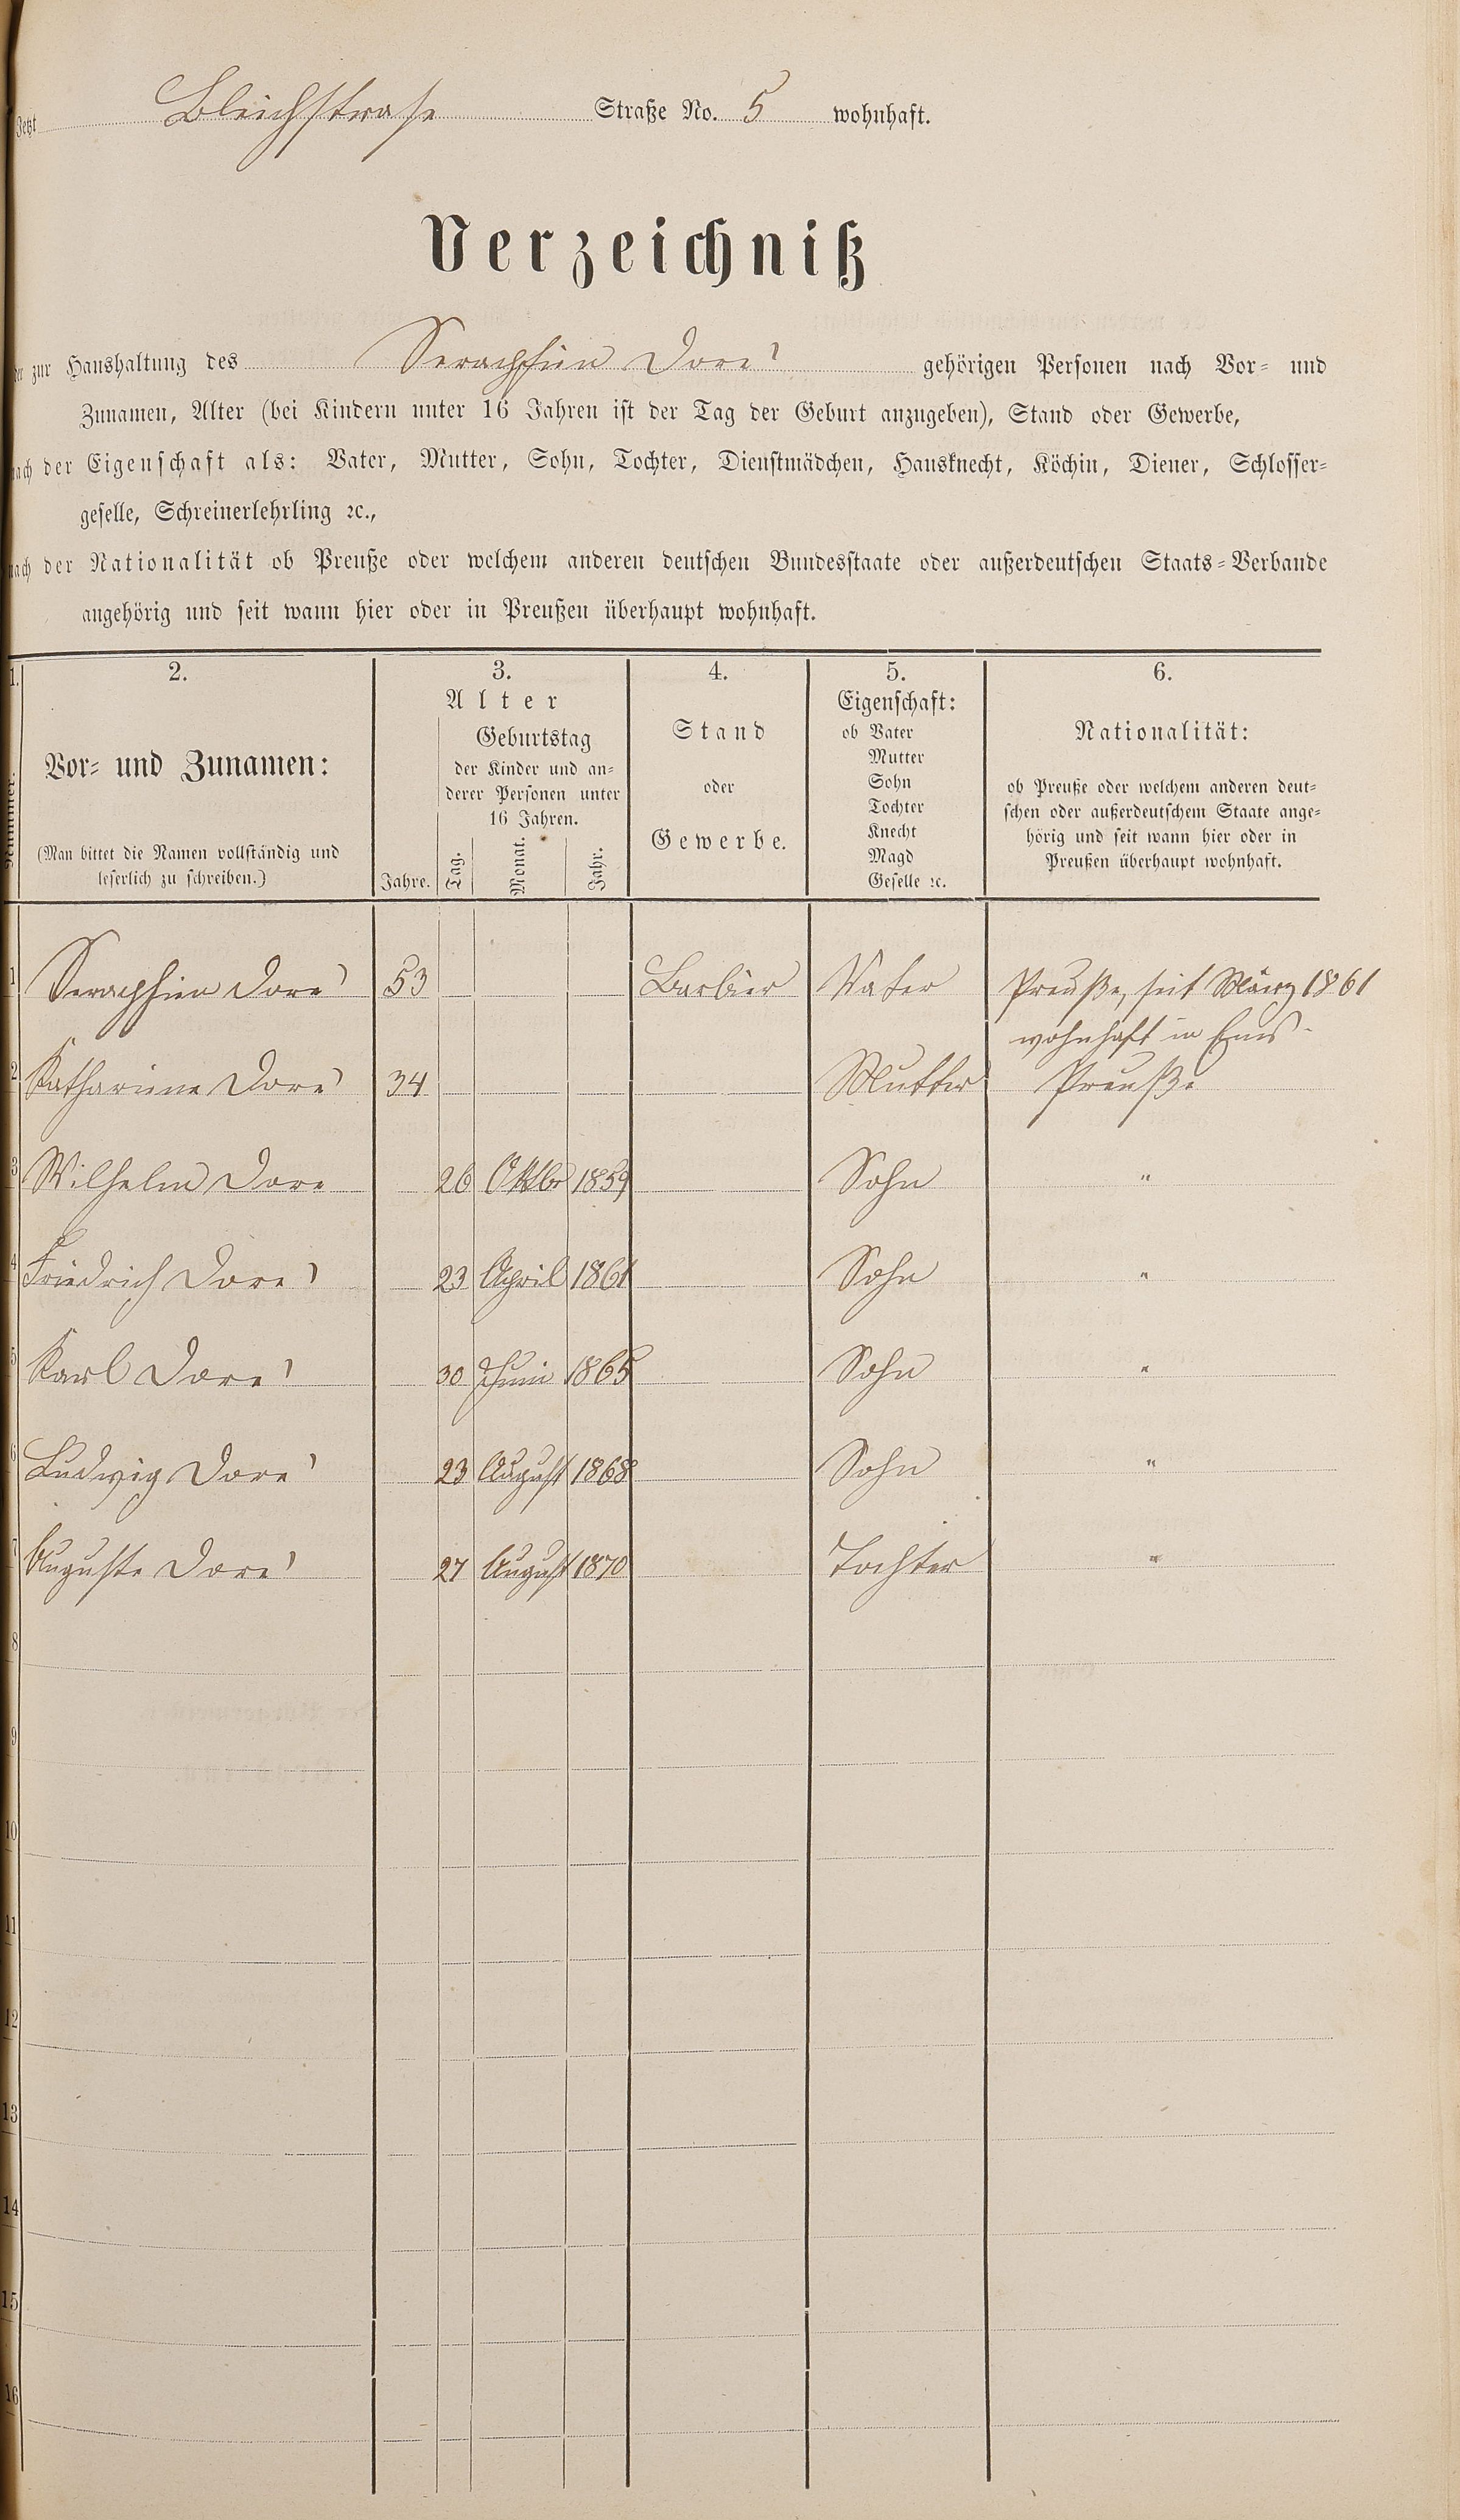 Jetzt Bleichstrase Straße No. 5 wohnhaft.
Verzeichniß
der zur Haushaltung des Seraphien Doré gehörigen Personen nach Vor- und
Zunamen, Alter (bei Kindern unter 16 Jahren ist der Tag der Geburt anzugeben), Stand oder Gewerbe,
nach der Eigenschaft als: Vater, Mutter, Sohn, Tochter, Dienstmädchen, Hausknecht, Köchin, Diener, Schlosser-
geselle, Schreinerlehrling ꝛc.,
nach der Nationalität ob Preuße oder welchem anderen deutschen Bundesstaate oder außerdeutschen Staats-Verbande
angehörig und seit wann hier oder in Preußen überhaupt wohnhaft.
1.
Nummer.
2.
Vor- und Zunamen:
(Man bittet die Namen vollständig und
leserlich zu schreiben.)
3.
Alter
Jahre.
Geburtstag
der Kinder und an-
derer Personen unter
16 Jahren.
Tag.
Monat.
Jahr.
4.
Stand
oder
Gewerbe.
5.
Eigenschaft:
ob Vater
Mutter
Sohn
Tochter
Knecht
Magd
Geselle ꝛc.
6.
Nationalität:
ob Preuße oder welchem anderen deut-
schen oder außerdeutschem Staate ange-
hörig und seit wann hier oder in
Preußen überhaupt wohnhaft.
1 Seraphien Doré 53 Barbier Vater Preuße, seit März 1861
wohnhaft in Ems.
2 Katharine Doré 34 Mutter Preuße
3 Wilhelm Dore 26 Oktbr 1859 Sohn "
4 Friedrich Doré 23 April 1861 Sohn "
5 Karl Doré 30 Juni 1865 Sohn "
6 Ludwig Doré 23 August 1868 Sohn "
7 Auguste Doré 27 August 1870 Tochter "
8
9
10
11
12
13
14
15
16